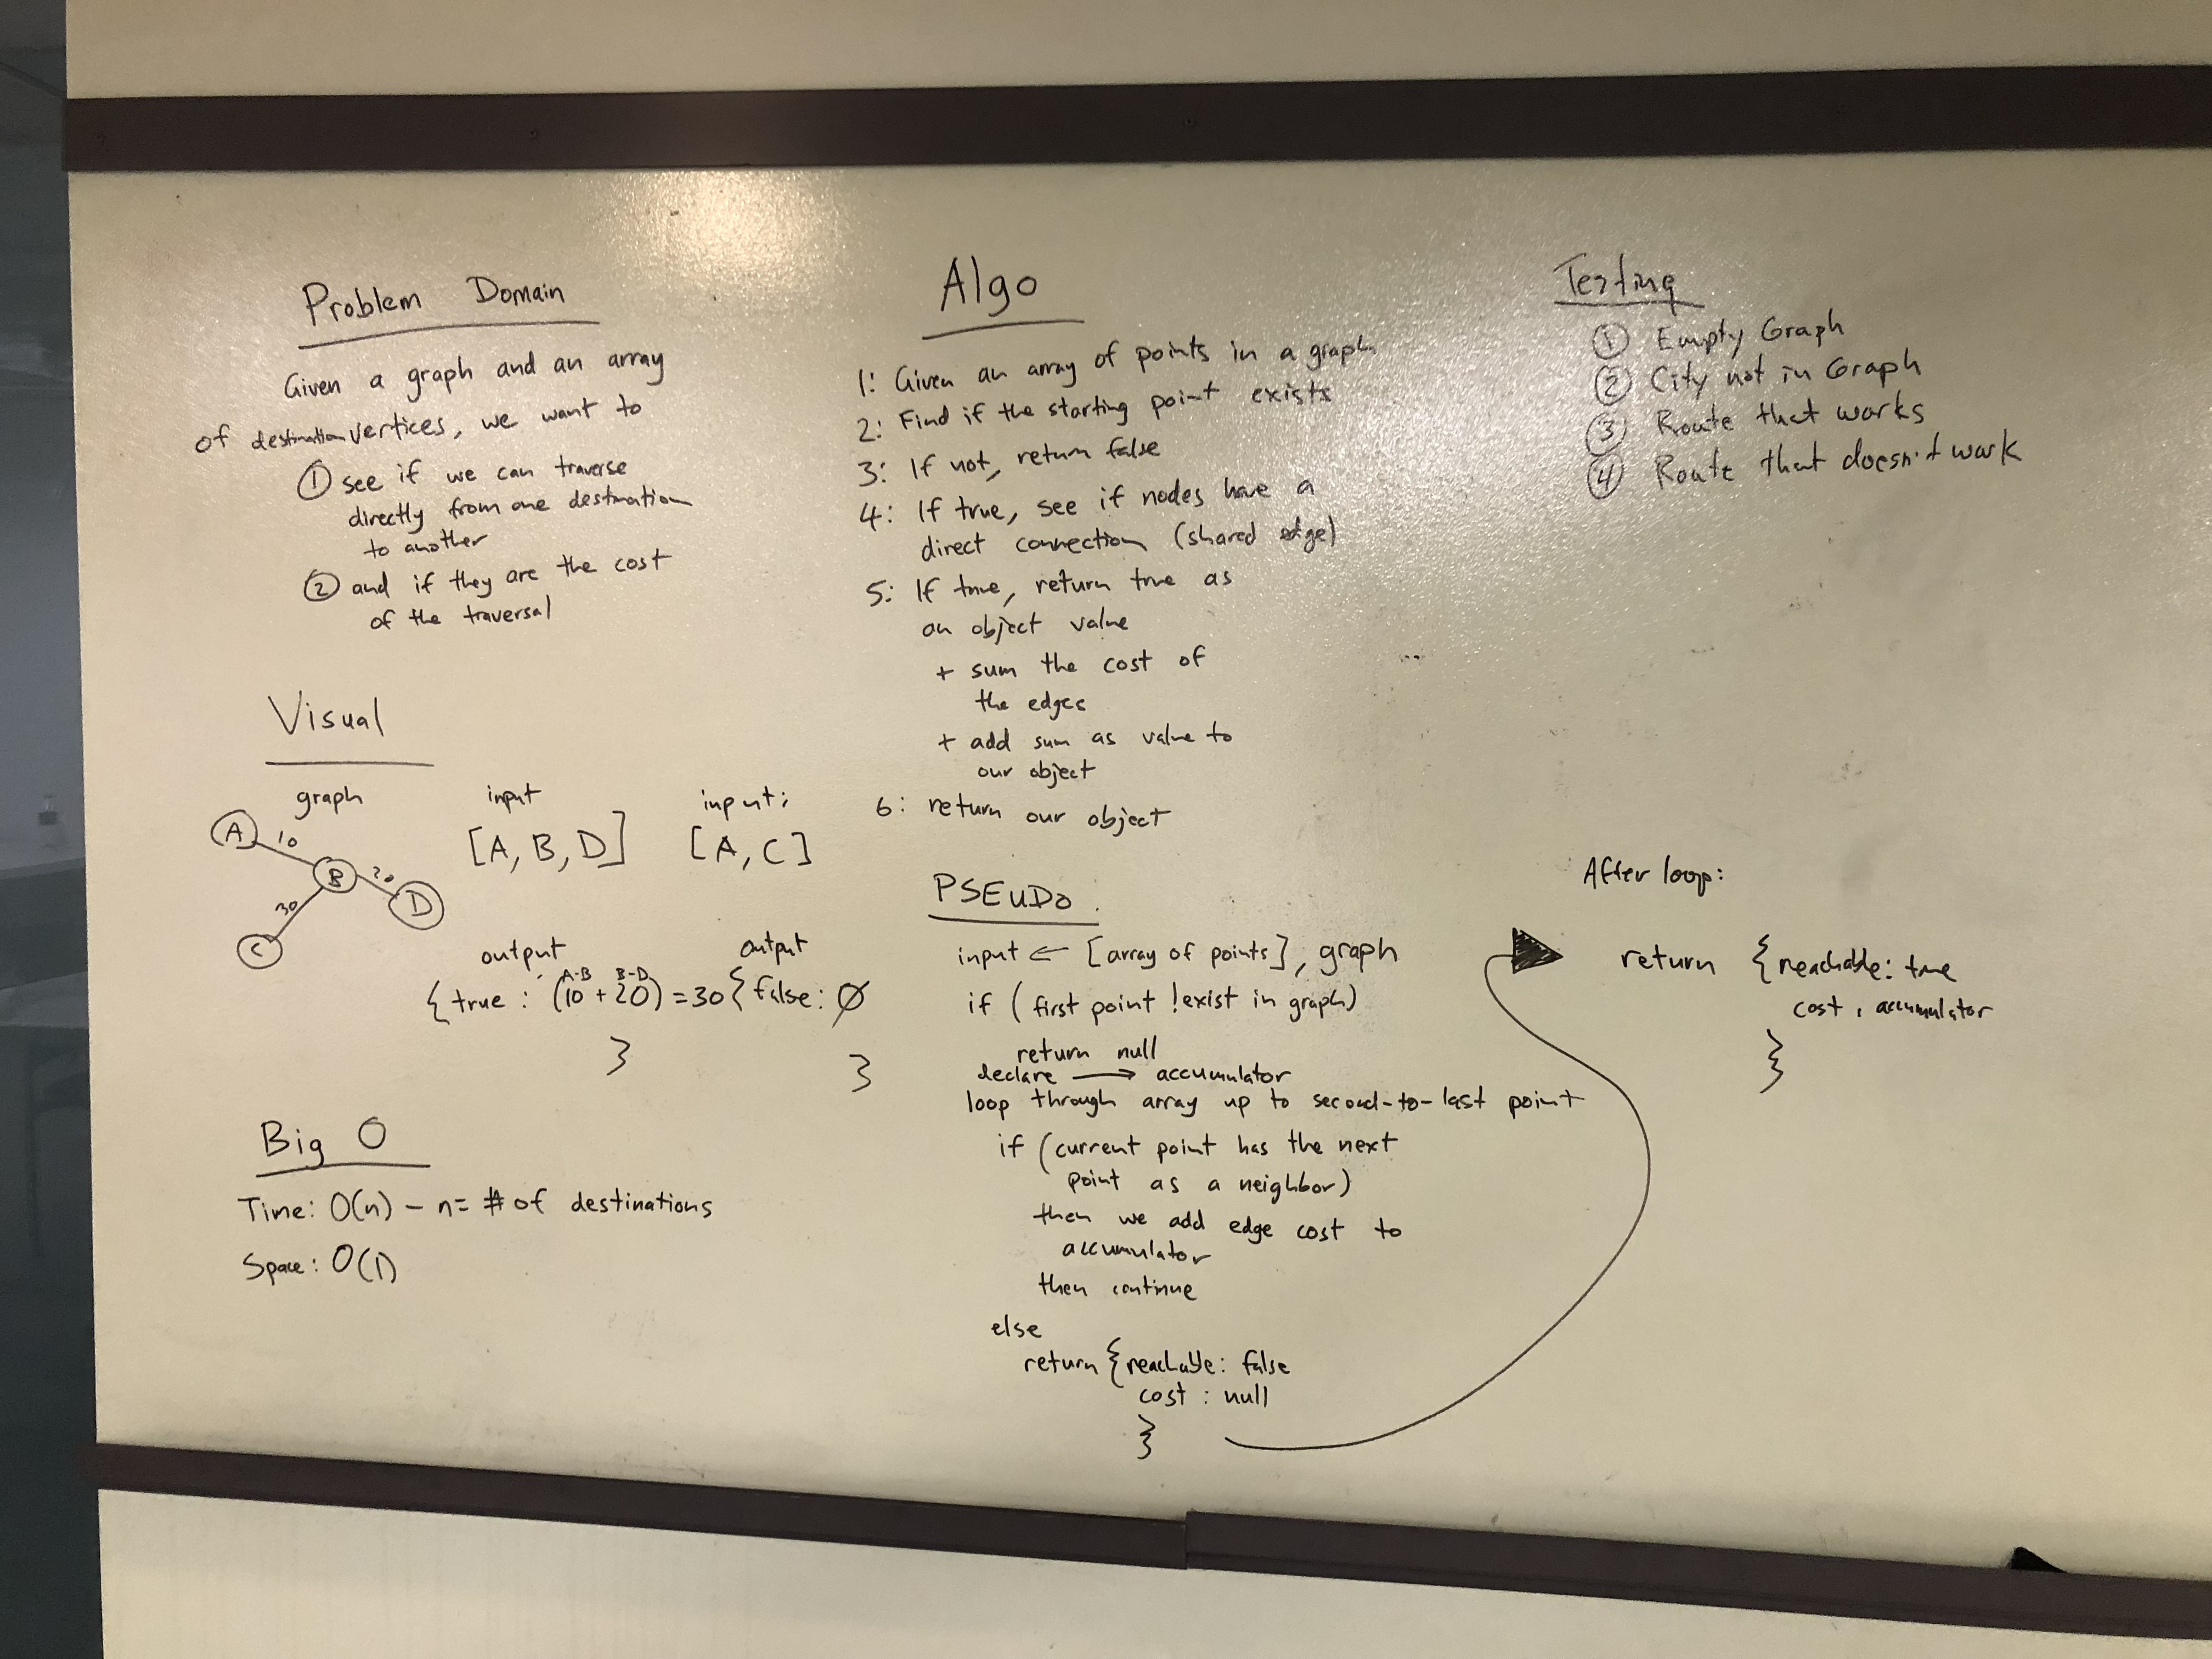 Problem Domain
Given a graph and an array
of destination vertices, we want to
① see if we can traverse
directly from one destination
to another
② and if they are the cost
of the traversal
Visual
graph
A
10
B
20
D
30
C
input
[A, B, D]
input:
[A, C]
output
A-B B-D
{ true : (10 + 20) = 30
}
output
{ false: Ø
}
Big O
Time: O(n) - n= # of destinations
Space: O(1)
Algo
1: Given an array of points in a graph
2: Find if the starting point exists
3: If not, return false
4: If true, see if nodes have a
direct connection (shared edge)
5: If true, return true as
an object value
+ sum the cost of
the edges
+ add sum as value to
our object
6: return our object
PSEUDO
input ← [array of points], graph
if (first point !exist in graph)
return null
declare → accumulator
loop through array up to second-to-last point
if (current point has the next
point as a neighbor)
then we add edge cost to
accumulator
then continue
else
return { reachable: false
cost : null
}
Testing
① Empty Graph
② City not in Graph
③ Route that works
④ Route that doesn't work
After loop:
return { reachable: true
cost , accumulator
}